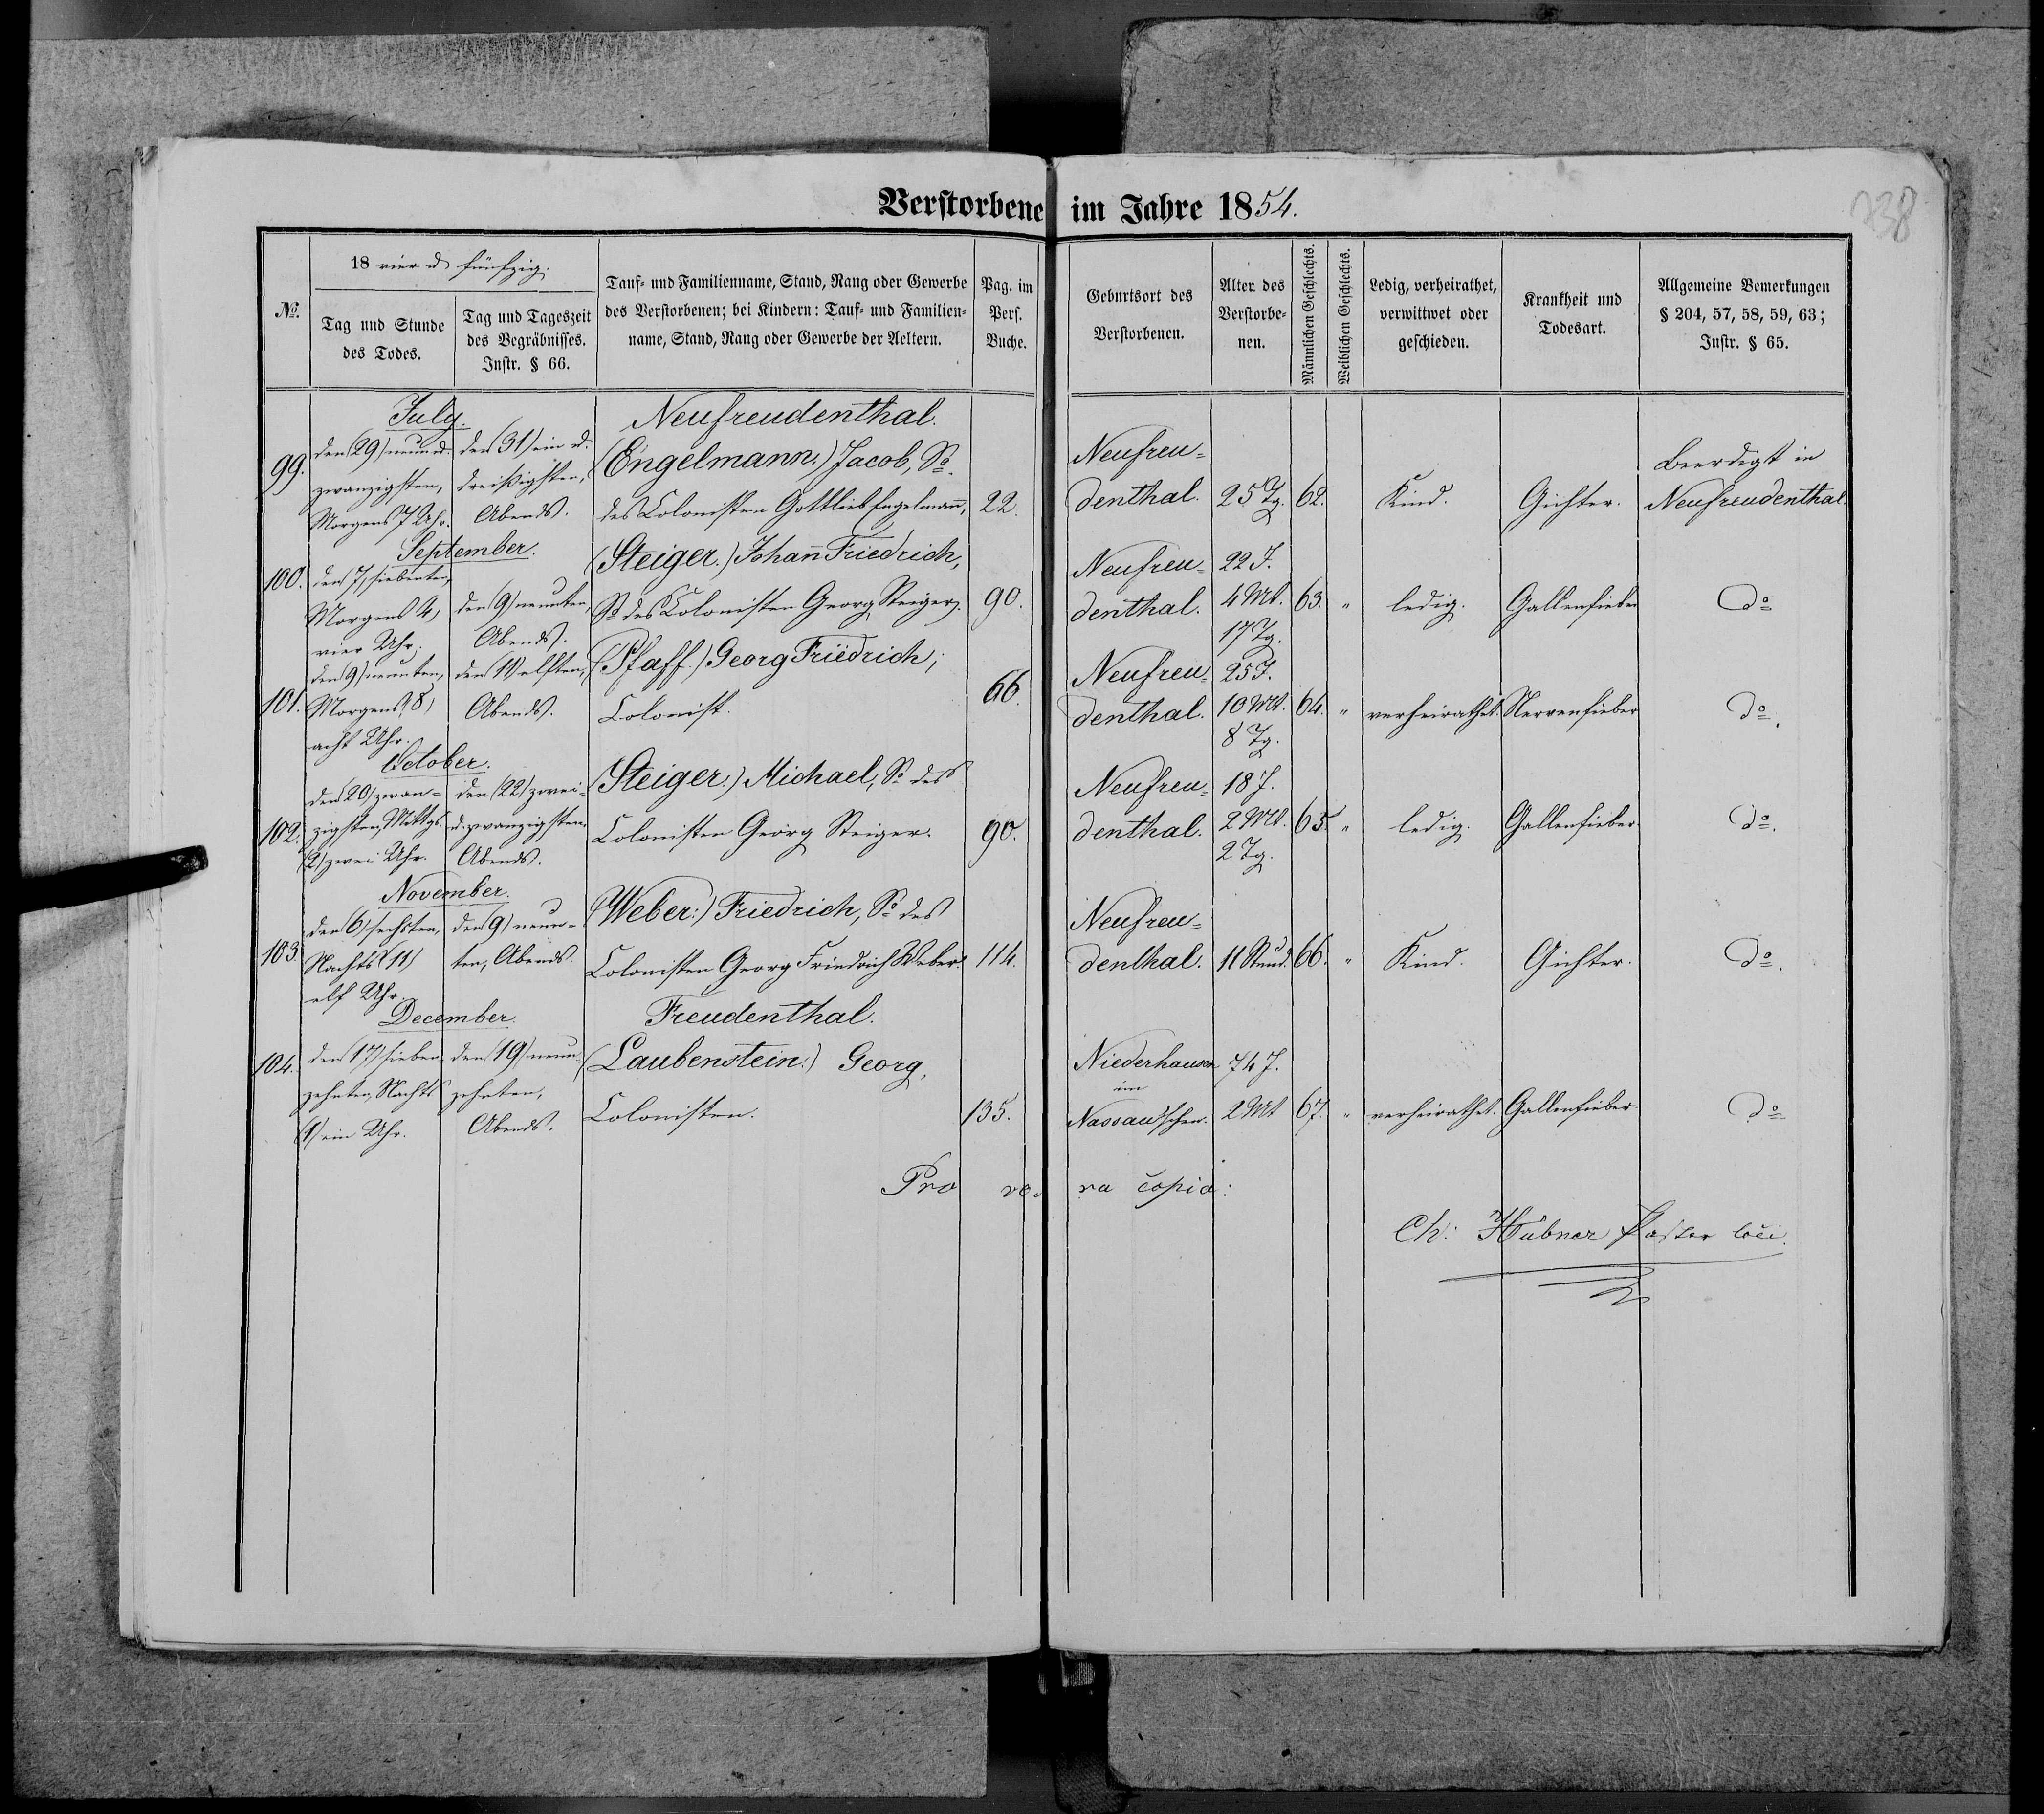 Verstorbene im Jahre 1854.
238
No.
18 vier u fünfzig.
Tag und Stunde
des Todes.
Tag und Tageszeit
des Begräbnisses.
Instr. § 66.
Tauf- und Familienname, Stand, Rang oder Gewerbe
des Verstorbenen; bei Kindern: Tauf- und Familien-
name, Stand, Rang oder Gewerbe der Aeltern.
Pag. im
Pers.
Buche.
Geburtsort des
Verstorbenen.
Alter des
Verstorbe-
nen.
Männlichen Geschlechts.
Weiblichen Geschlechts.
Ledig, verheirathet,
verwittwet oder
geschieden.
Krankheit und
Todesart.
Allgemeine Bemerkungen
§ 204, 57, 58, 59, 63;
Instr. § 65.
July.
Neufreudenthal.
99.
den (29) neun u.
zwanzigsten,
Morgens 7 Uhr.
den (31) ein u.
dreißigsten,
Abends.
(Engelmann:) Jacob, So.
des Colonisten Gottlieb Engelmañ,
22.
Neufreu-
denthal.
25 Tg.
62.
Kind.
Gichter.
Beerdigt in
Neufreudenthal.
September.
100.
den 7, siebenten,
Morgens 4,
vier Uhr.
den 9) neunten,
Abends.
(Steiger.) Johañ Friedrich,
So. des Colonisten Georg Steiger.
90.
Neufreu-
denthal.
22 J.
4 Mt.
17 Tg.
63.
"
ledig.
Gallenfieber
do
101.
den 9) neunten,
Morgens 8)
acht Uhr.
den 11) elften,
Abends.
(Pfaff.) Georg Friedrich,
Colonist.
66.
Neufreu-
denthal.
25 J.
10 Mt.
8 Tg.
64.
"
verheirathet.
Nervenfieber
do.
October.
102.
den 20) zwan-
zigsten, Mittgs
(2) zwei Uhr.
den (22) zwei-
u. zwanzigsten.
Abends.
(Steiger.) Michael, So. des
Colonisten Georg Steiger.
90.
Neufreu-
denthal.
18 J.
2 Mt.
2 Tg.
65.
"
ledig.
Gallenfieber.
do.
November.
103.
den 6) sechsten,
Nachts (11)
elf Uhr.
den 9) neun-
ten, Abends.
(Weber:) Friedrich, So. des
Colonisten Georg Friedrich Weber.
114.
Neufreu-
denthal.
11 Stund.
66.
"
Kind.
Gichter.
do.
December.
Freudenthal.
104.
den 17) sieben
zehnten, Nachts
(1) ein Uhr.
den (19) neun-
zehnten,
Abends.
(Laubenstein:) Georg,
Colonisten.
135.
Niederhausen
im
Nassau'schen.
74 J.
2 Mt
67.
"
verheirathet.
Gallenfieber
do
Pro vera copia:
Ch: Hübner Pastor loci.